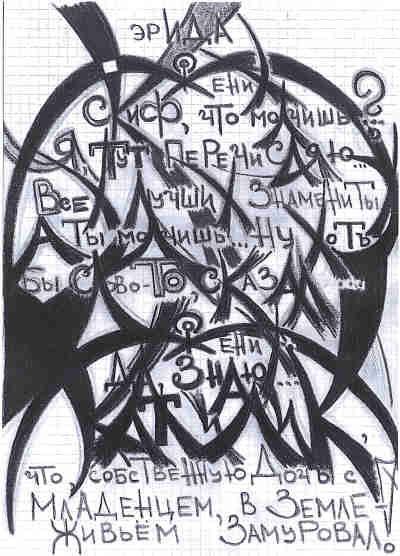 ЭРИДА
ени
Скиф, что молчишь?...
Я, тут перечисляю...
Все лучши знамениты
А ты молчишь... ну хоть
бы слово-то, сказал
ени...
Да, знаю...
что, собственную дочь с
младенцем, в земле-
живьём замуровал!